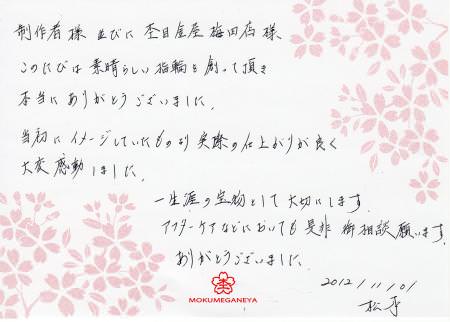 制作者様 並びに 杢目金屋 梅田店 様
このたびは 素晴らしい 指輪を 創って頂き
本当に ありがとうございました。
当初に イメージしていたものより 実際の仕上がりが良く
大変 感動しました。
一生涯の宝物として 大切にします。
アフターケアなどにおいても 是非 御相談 願います。
ありがとうございました。
2012/11/01
MOKUMEGANEYA
松平